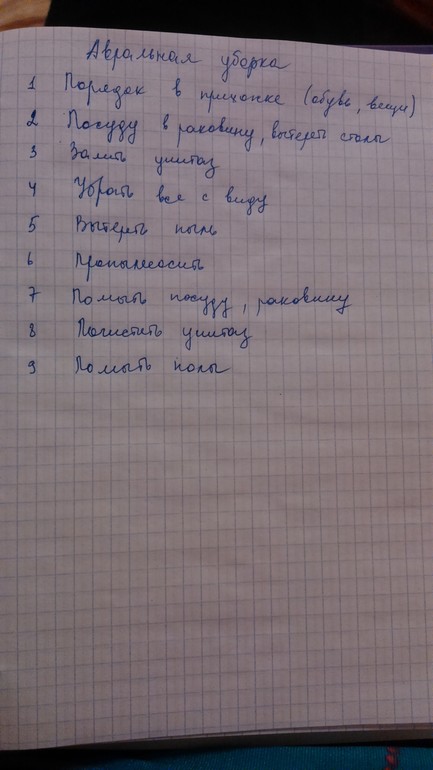 Авральная уборка
1 Порядок в прихожке (обувь, вещи)
2 Посуду в раковину, вытереть столы
3 Залить унитаз
4 Убрать все с виду
5 Вытереть пыль
6 Пропылесосить
7 Помыть посуду, раковину
8 Почистить унитаз
9 Помыть полы